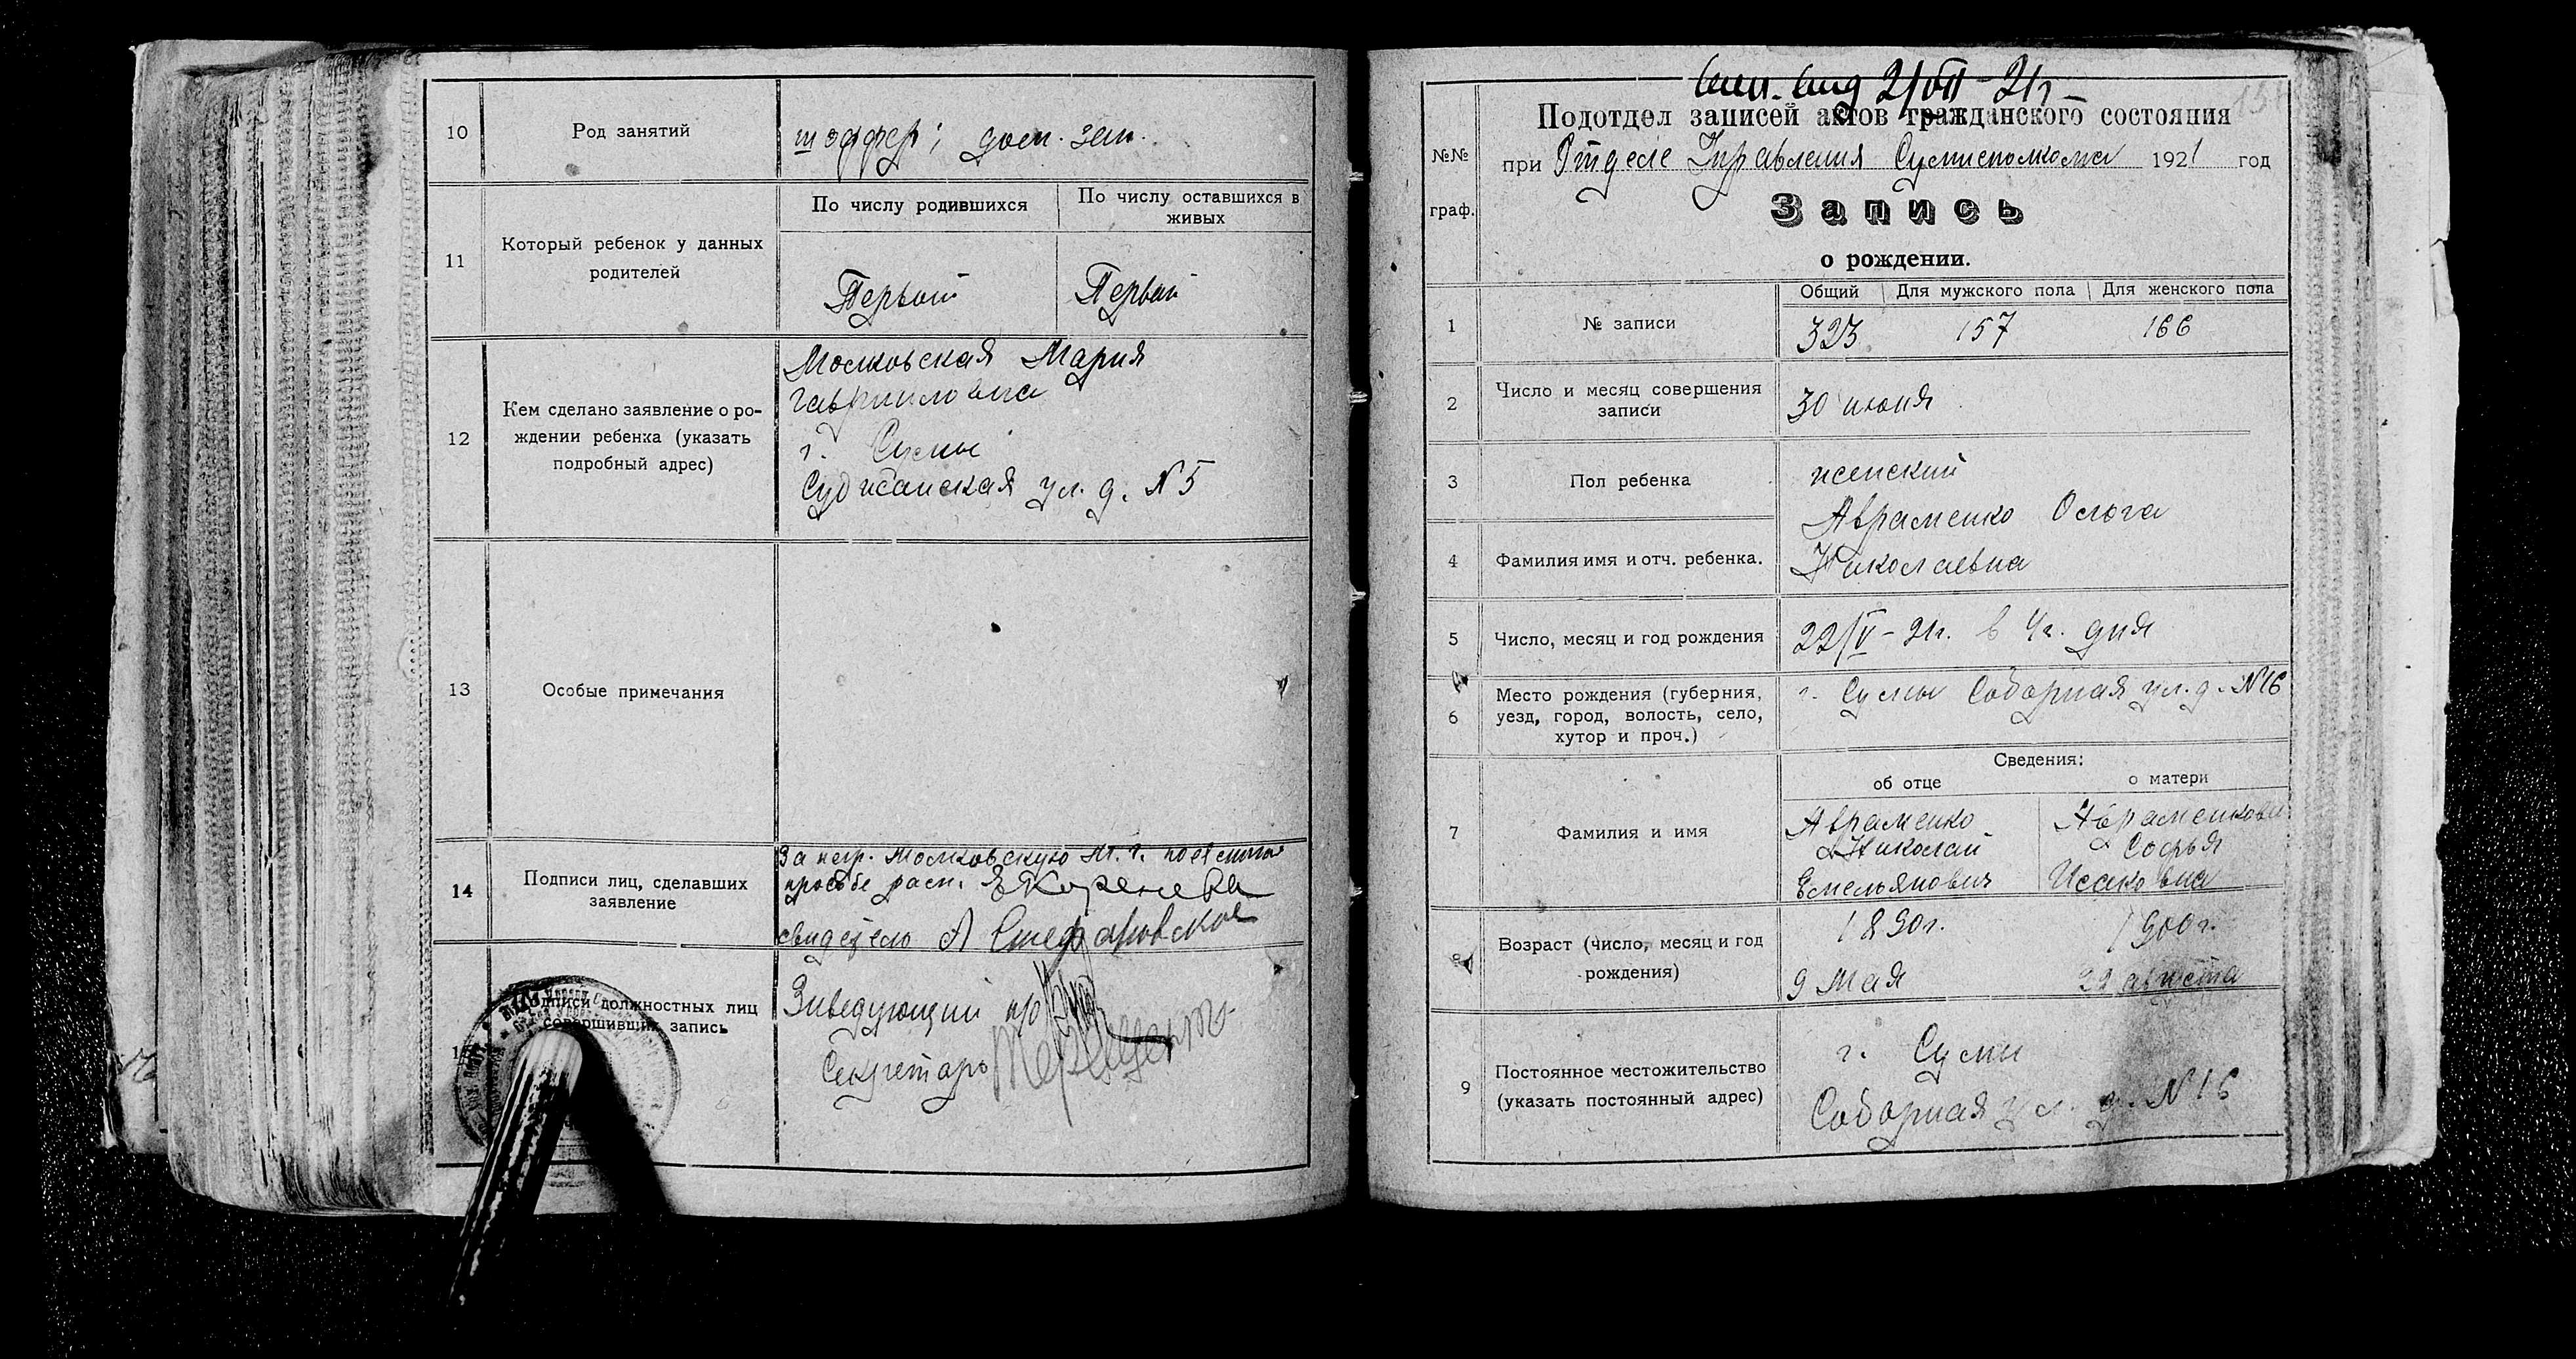 10
Род занятий
шоффер; дом. зан.
11
Который ребенок у данных
родителей
По числу родившихся
По числу оставшихся в
живых
Первый
Первый
12
Кем сделано заявление о ро-
ждении ребенка (указать
подробный адрес)
Московская Мария
Гаврииловна
г. Сумы
Суджанская ул. д. N 5
13
Особые примечания
14
Подписи лиц, сделавших
заявление
За негр. Московскую М. Г. по её личной
просьбе расп. Коренева
свидетель А Стефановской
Подписи должностных лиц
совершивших запись
Заведующий п/о
Секретарь
21/VII - 21г
Подотдел записей актов гражданского состояния
при Отделе Управления Сумисполкома 1921 год
№№
граф.
Запись
о рождении.
1
№ записи
Общий
Для мужского пола
Для женского пола
323
157
166
2
Число и месяц совершения
записи
30 июня
3
Пол ребенка
женский
4
Фамилия имя и отч. ребенка.
Авраменко Ольга
Николаевна
5
Число, месяц и год рождения
22/V - 21г. в 4г. дня
6
Место рождения (губерния,
уезд, город, волость, село,
хутор и проч.)
г. Сумы Соборная ул. д. N 16
7
Фамилия и имя
Сведения:
об отце
о матери
Авраменко
Николай
Емельянович
Авраменкова
Софья
Исаковна
8
Возраст (число, месяц и год
рождения)
1890г.
9 Мая
1900г.
29 августа
9
Постоянное местожительство
(указать постоянный адрес)
г. Сумы
Соборная ул. д. N 16